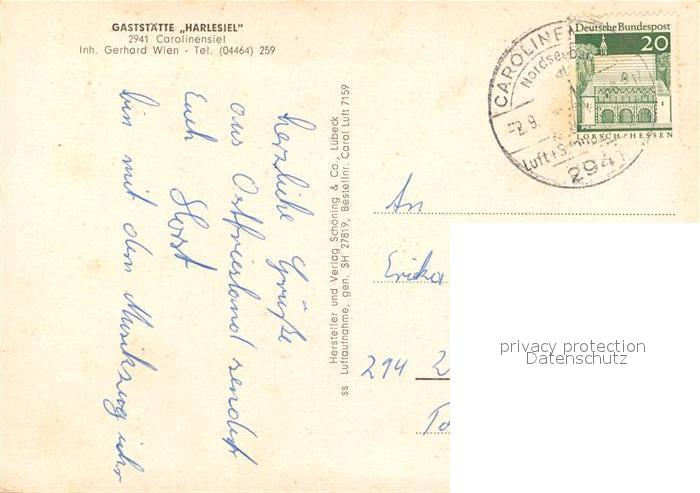 GASTSTÄTTE „HARLESIEL"
2941 Carolinensiel
Inh. Gerhard Wien - Tel. (04464) 259
herzliche Grüße
aus Ostfriesland sendet
Euch Horst
bin mit dem Musikzug
Hersteller und Verlag Schöning & Co., Lübeck
ss Luftaufnahme, gen. SH 27819, Bestellnr. Carol Luft 7159
CAROLINE
Nordseebad
2.9.
Luft+S
2941
Deutsche Bundespost
20
LORSCH/HESSEN
An
Erika
294
privacy protection
Datenschutz